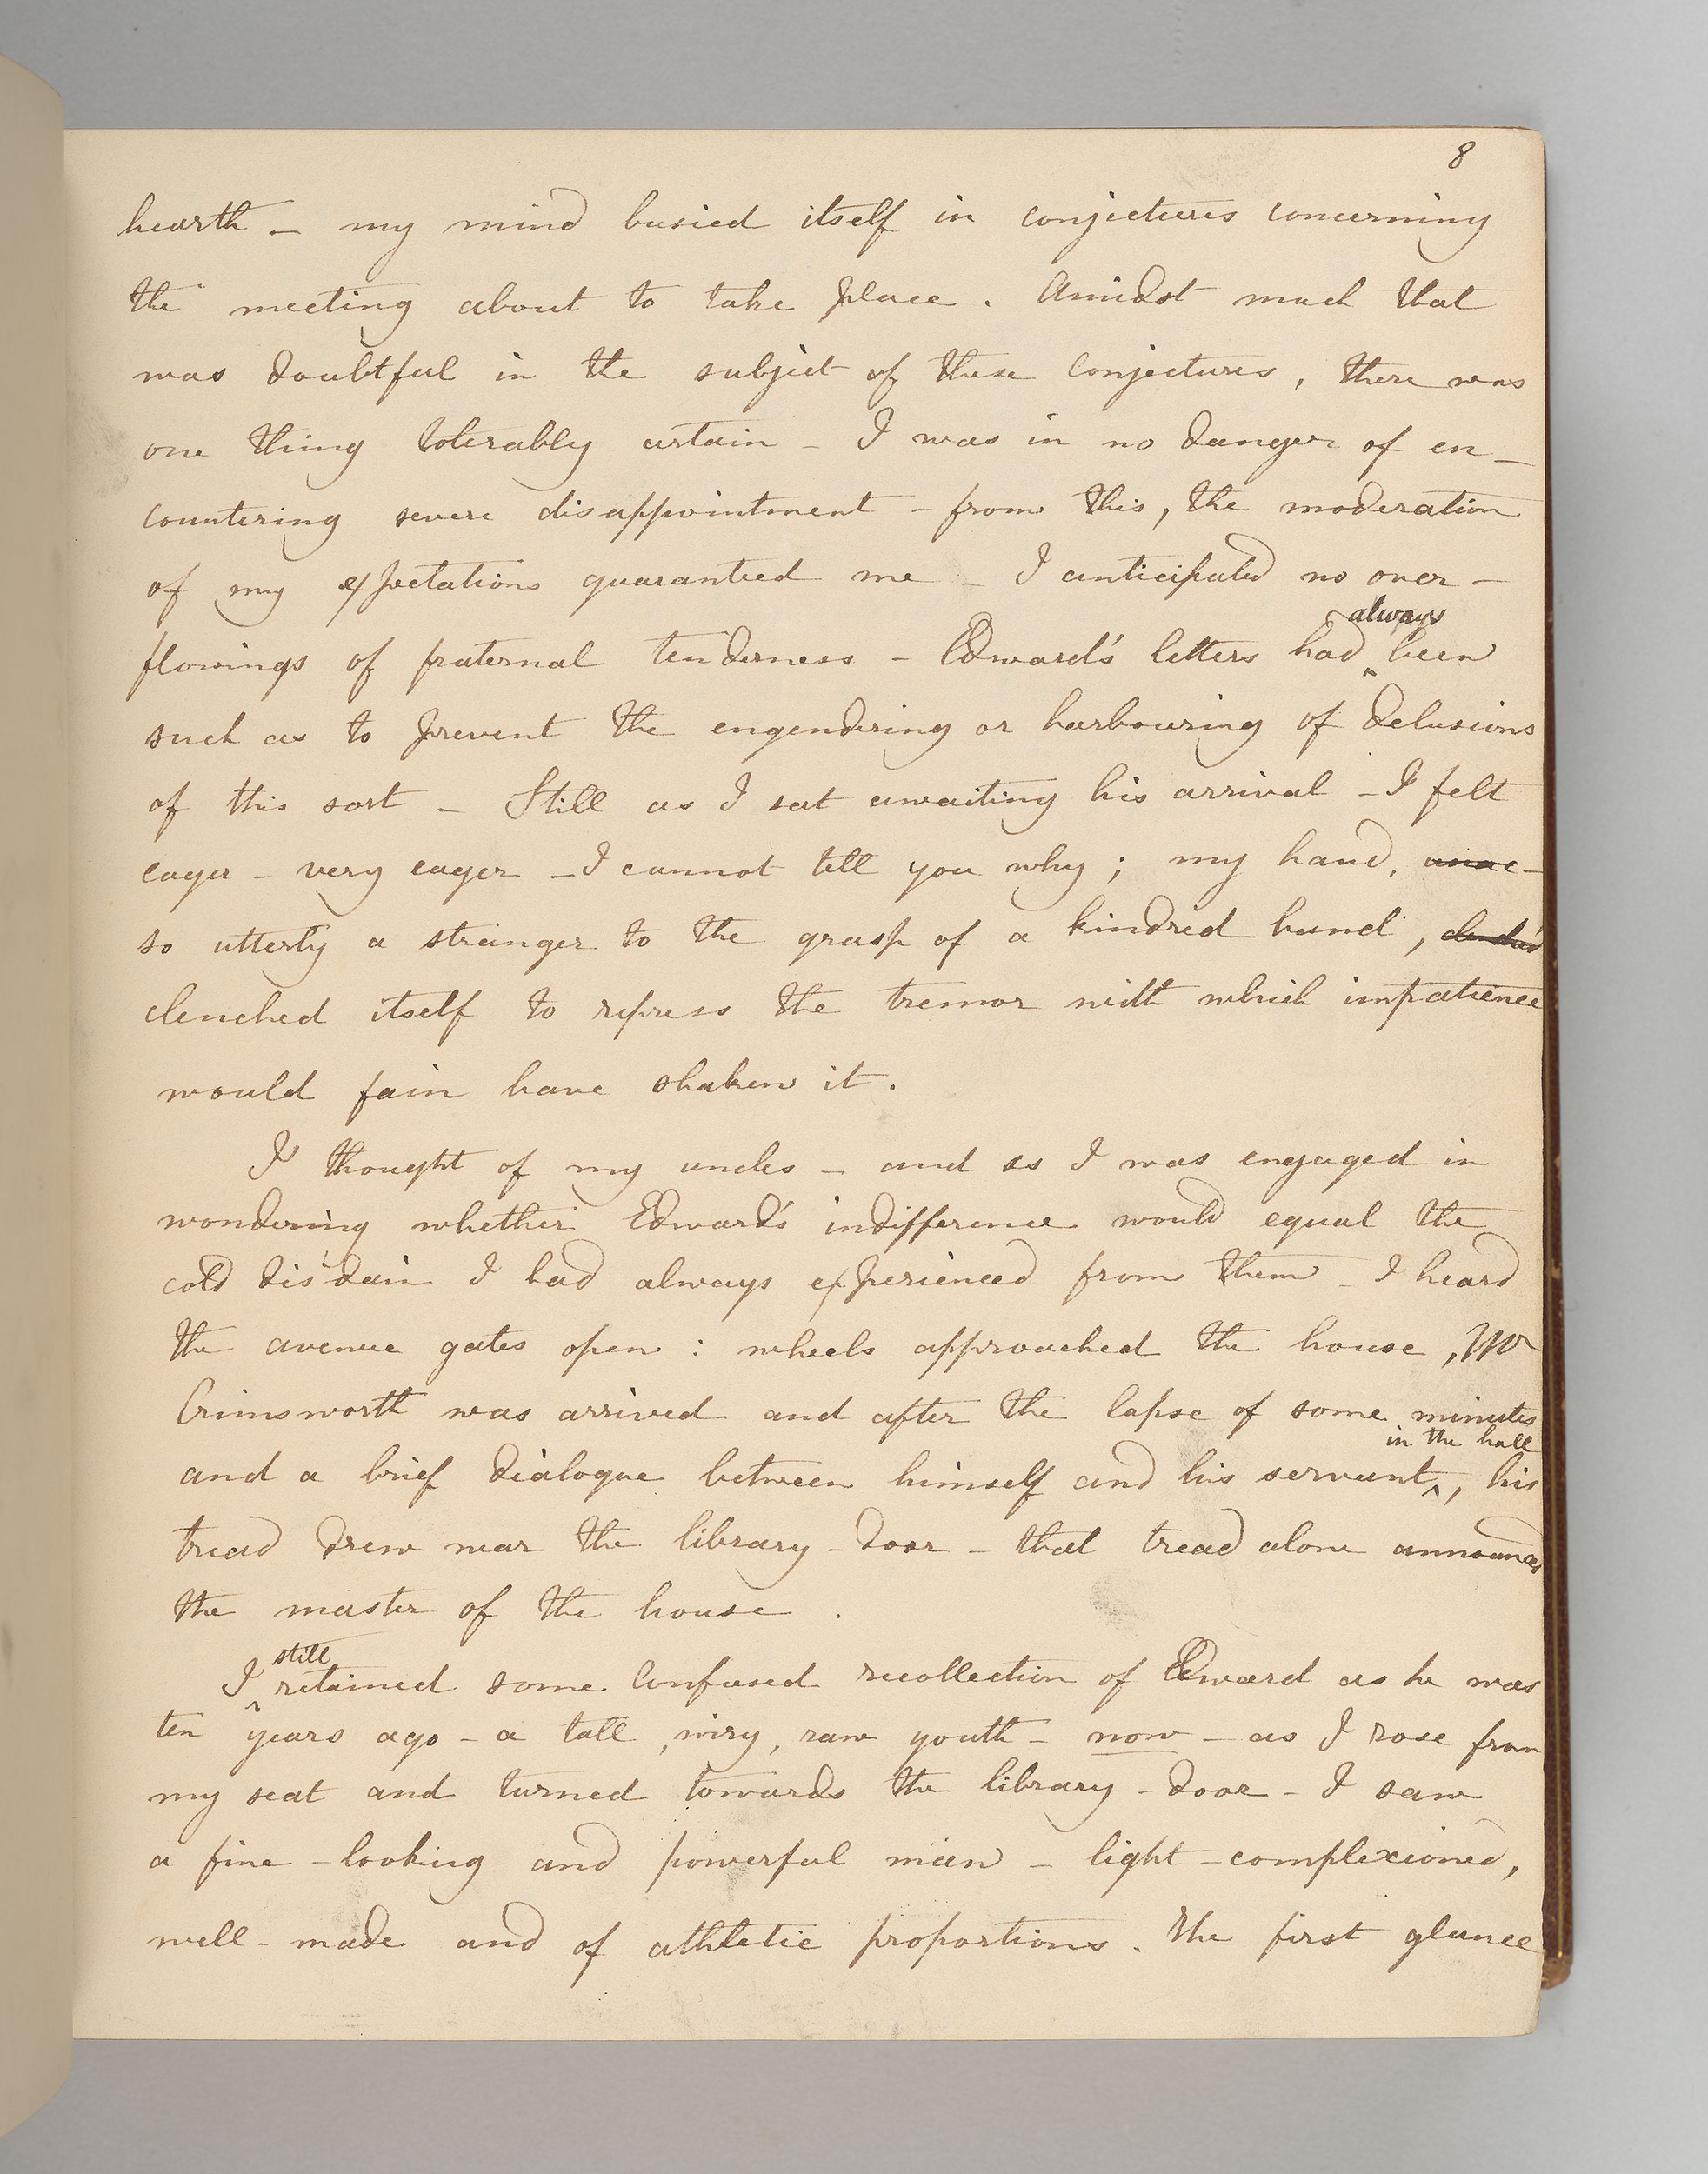 8
hearth – my mind busied itself in conjectures concerning
the meeting about to take place. Amidst much that
was doubtful in the subject of these conjectures, there was
one thing tolerably certain – I was in no danger of en–
countering severe disappointment – from this, the moderation
of my expectations guaranteed me – I anticipated no over–
always
flowings of fraternal tenderness – Edward's letters had been
such as to prevent the engendering or harbouring of delusions
of this sort – Still as I sat awaiting his arrival – I felt
eager – very eager – I cannot tell you why; my hand, unac–
so utterly a stranger to the grasp of a kindred hand,
clenched itself to repress the tremor with which impatience
would fain have shaken it.
I thought of my uncles – and as I was engaged in
wondering whether Edward's indifference would equal the
cold disdain I had always experienced from them – I heard
the avenue gates open : wheels approached the house, Mr
Crimsworth was arrived and after the lapse of some minutes
in the hall
and a brief dialogue between himself and his servant, his
tread drew near the library–door – that tread alone announced
the master of the house.
still
I retained some confused recollection of Edward as he was
ten years ago – a tall, wiry, raw youth – now – as I rose from
my seat and turned towards the library–door – I saw
a fine–looking and powerful man – light–complexioned,
well–made and of athletic proportions. The first glance